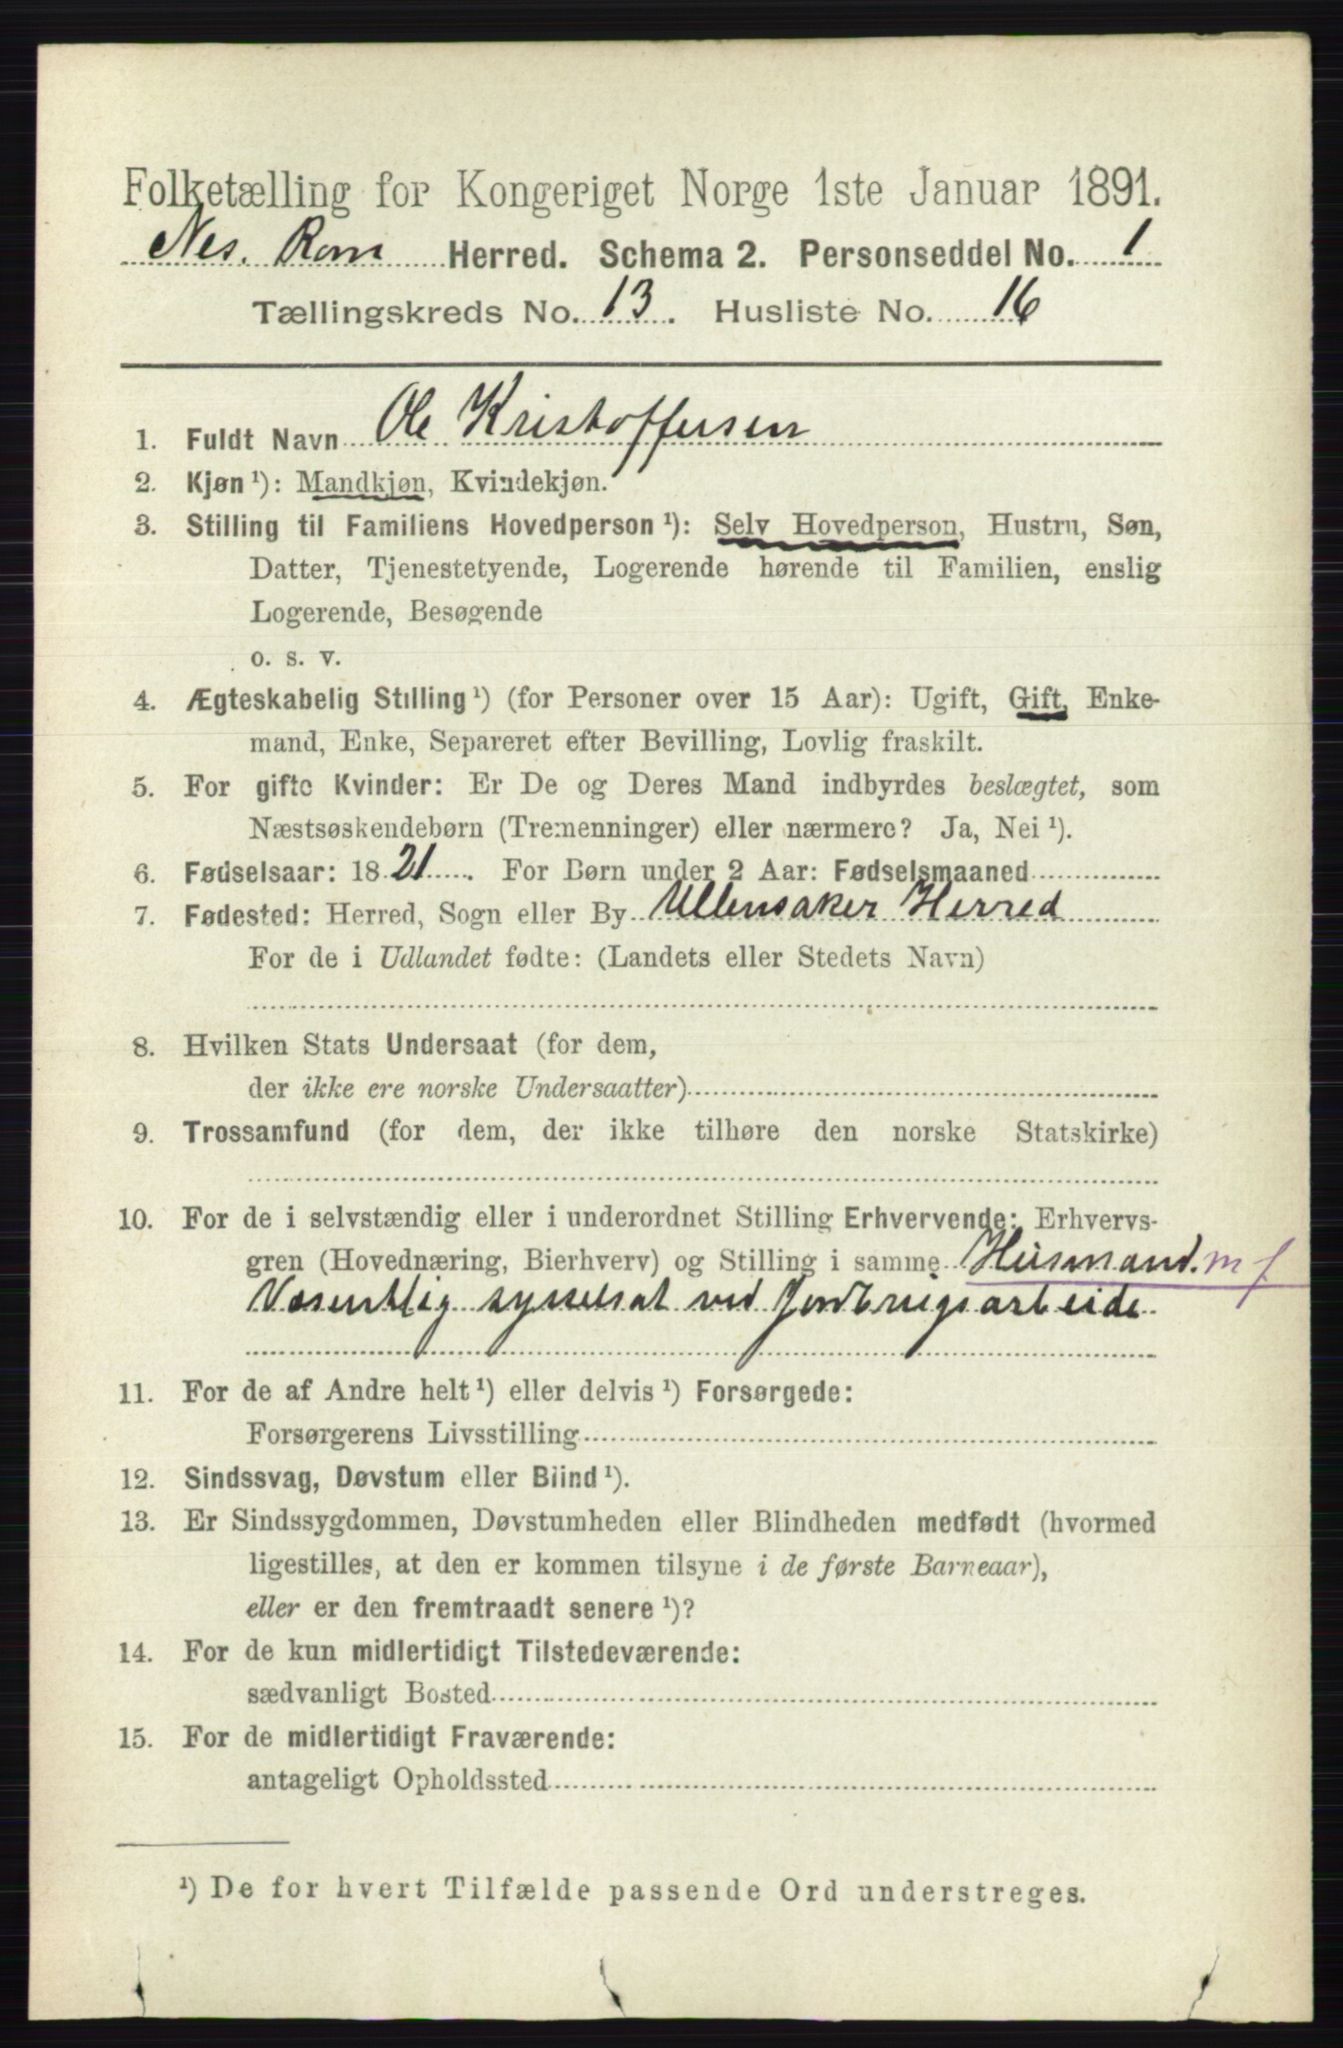 Folketælling for Kongeriget Norge 1ste Januar 1891.
Nes. Rom Herred. Schema 2. Personseddel No. 1
Tællingskreds No. 13. Husliste No. 16
1. Fuldt Navn Ole Kristoffersen
2. Kjøn ¹): Mandkjøn, Kvindekjøn.
3. Stilling til Familiens Hovedperson ¹): Selv Hovedperson, Hustru, Søn,
Datter, Tjenestetyende, Logerende hørende til Familien, enslig
Logerende, Besøgende
o. s. v.
4. Ægteskabelig Stilling ¹) (for Personer over 15 Aar): Ugift, Gift, Enke-
mand, Enke, Separeret efter Bevilling, Lovlig fraskilt.
5. For gifte Kvinder: Er De og Deres Mand indbyrdes beslægtet, som
Næstsøskendebørn (Tremenninger) eller nærmere? Ja, Nei ¹).
6. Fødselsaar: 1821. For Børn under 2 Aar: Fødselsmaaned
7. Fødested: Herred, Sogn eller By Ullensaker Herred
For de i Udlandet fødte: (Landets eller Stedets Navn)
8. Hvilken Stats Undersaat (for dem,
der ikke ere norske Undersaatter)
9. Trossamfund (for dem, der ikke tilhøre den norske Statskirke)
10. For de i selvstændig eller i underordnet Stilling Erhvervende: Erhvervs-
gren (Hovednæring, Bierhverv) og Stilling i samme Husmand. m f
Væsentlig sysselsat ved Jordbrugsarbeide
11. For de af Andre helt ¹) eller delvis ¹) Forsørgede:
Forsørgerens Livsstilling
12. Sindssvag, Døvstum eller Blind ¹).
13. Er Sindssygdommen, Døvstumheden eller Blindheden medfødt (hvormed
ligestilles, at den er kommen tilsyne i de første Barneaar),
eller er den fremtraadt senere ¹)?
14. For de kun midlertidigt Tilstedeværende:
sædvanligt Bosted
15. For de midlertidigt Fraværende:
antageligt Opholdssted
¹) De for hvert Tilfælde passende Ord understreges.